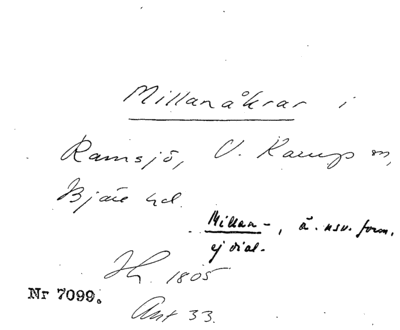 Millanåkrar i
Ramsjö, V. Karup sn,
Bjäre hd.
Millan-, ä. nsv. form,
ej dial.
1805
Nr 7099.
Ant 33.